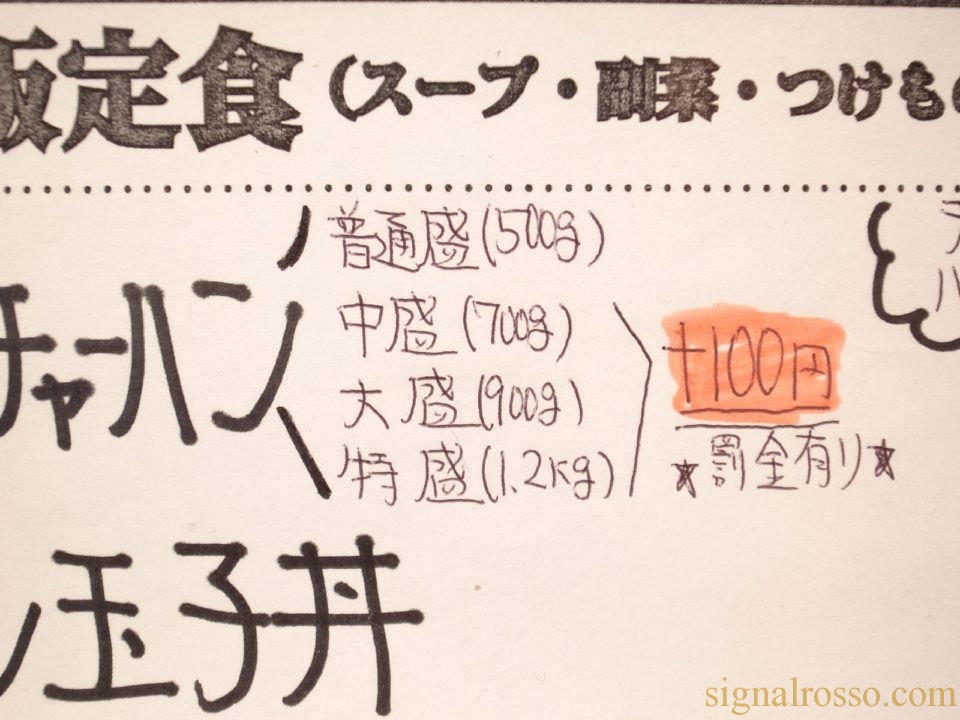 飯定食(スープ・副菜・つけも
普通盛(500g)
中盛(700g)
チャーハン
大盛(900g)
特盛(1.2kg)
+100円
★罰金有り★
玉子丼
signalrosso.com